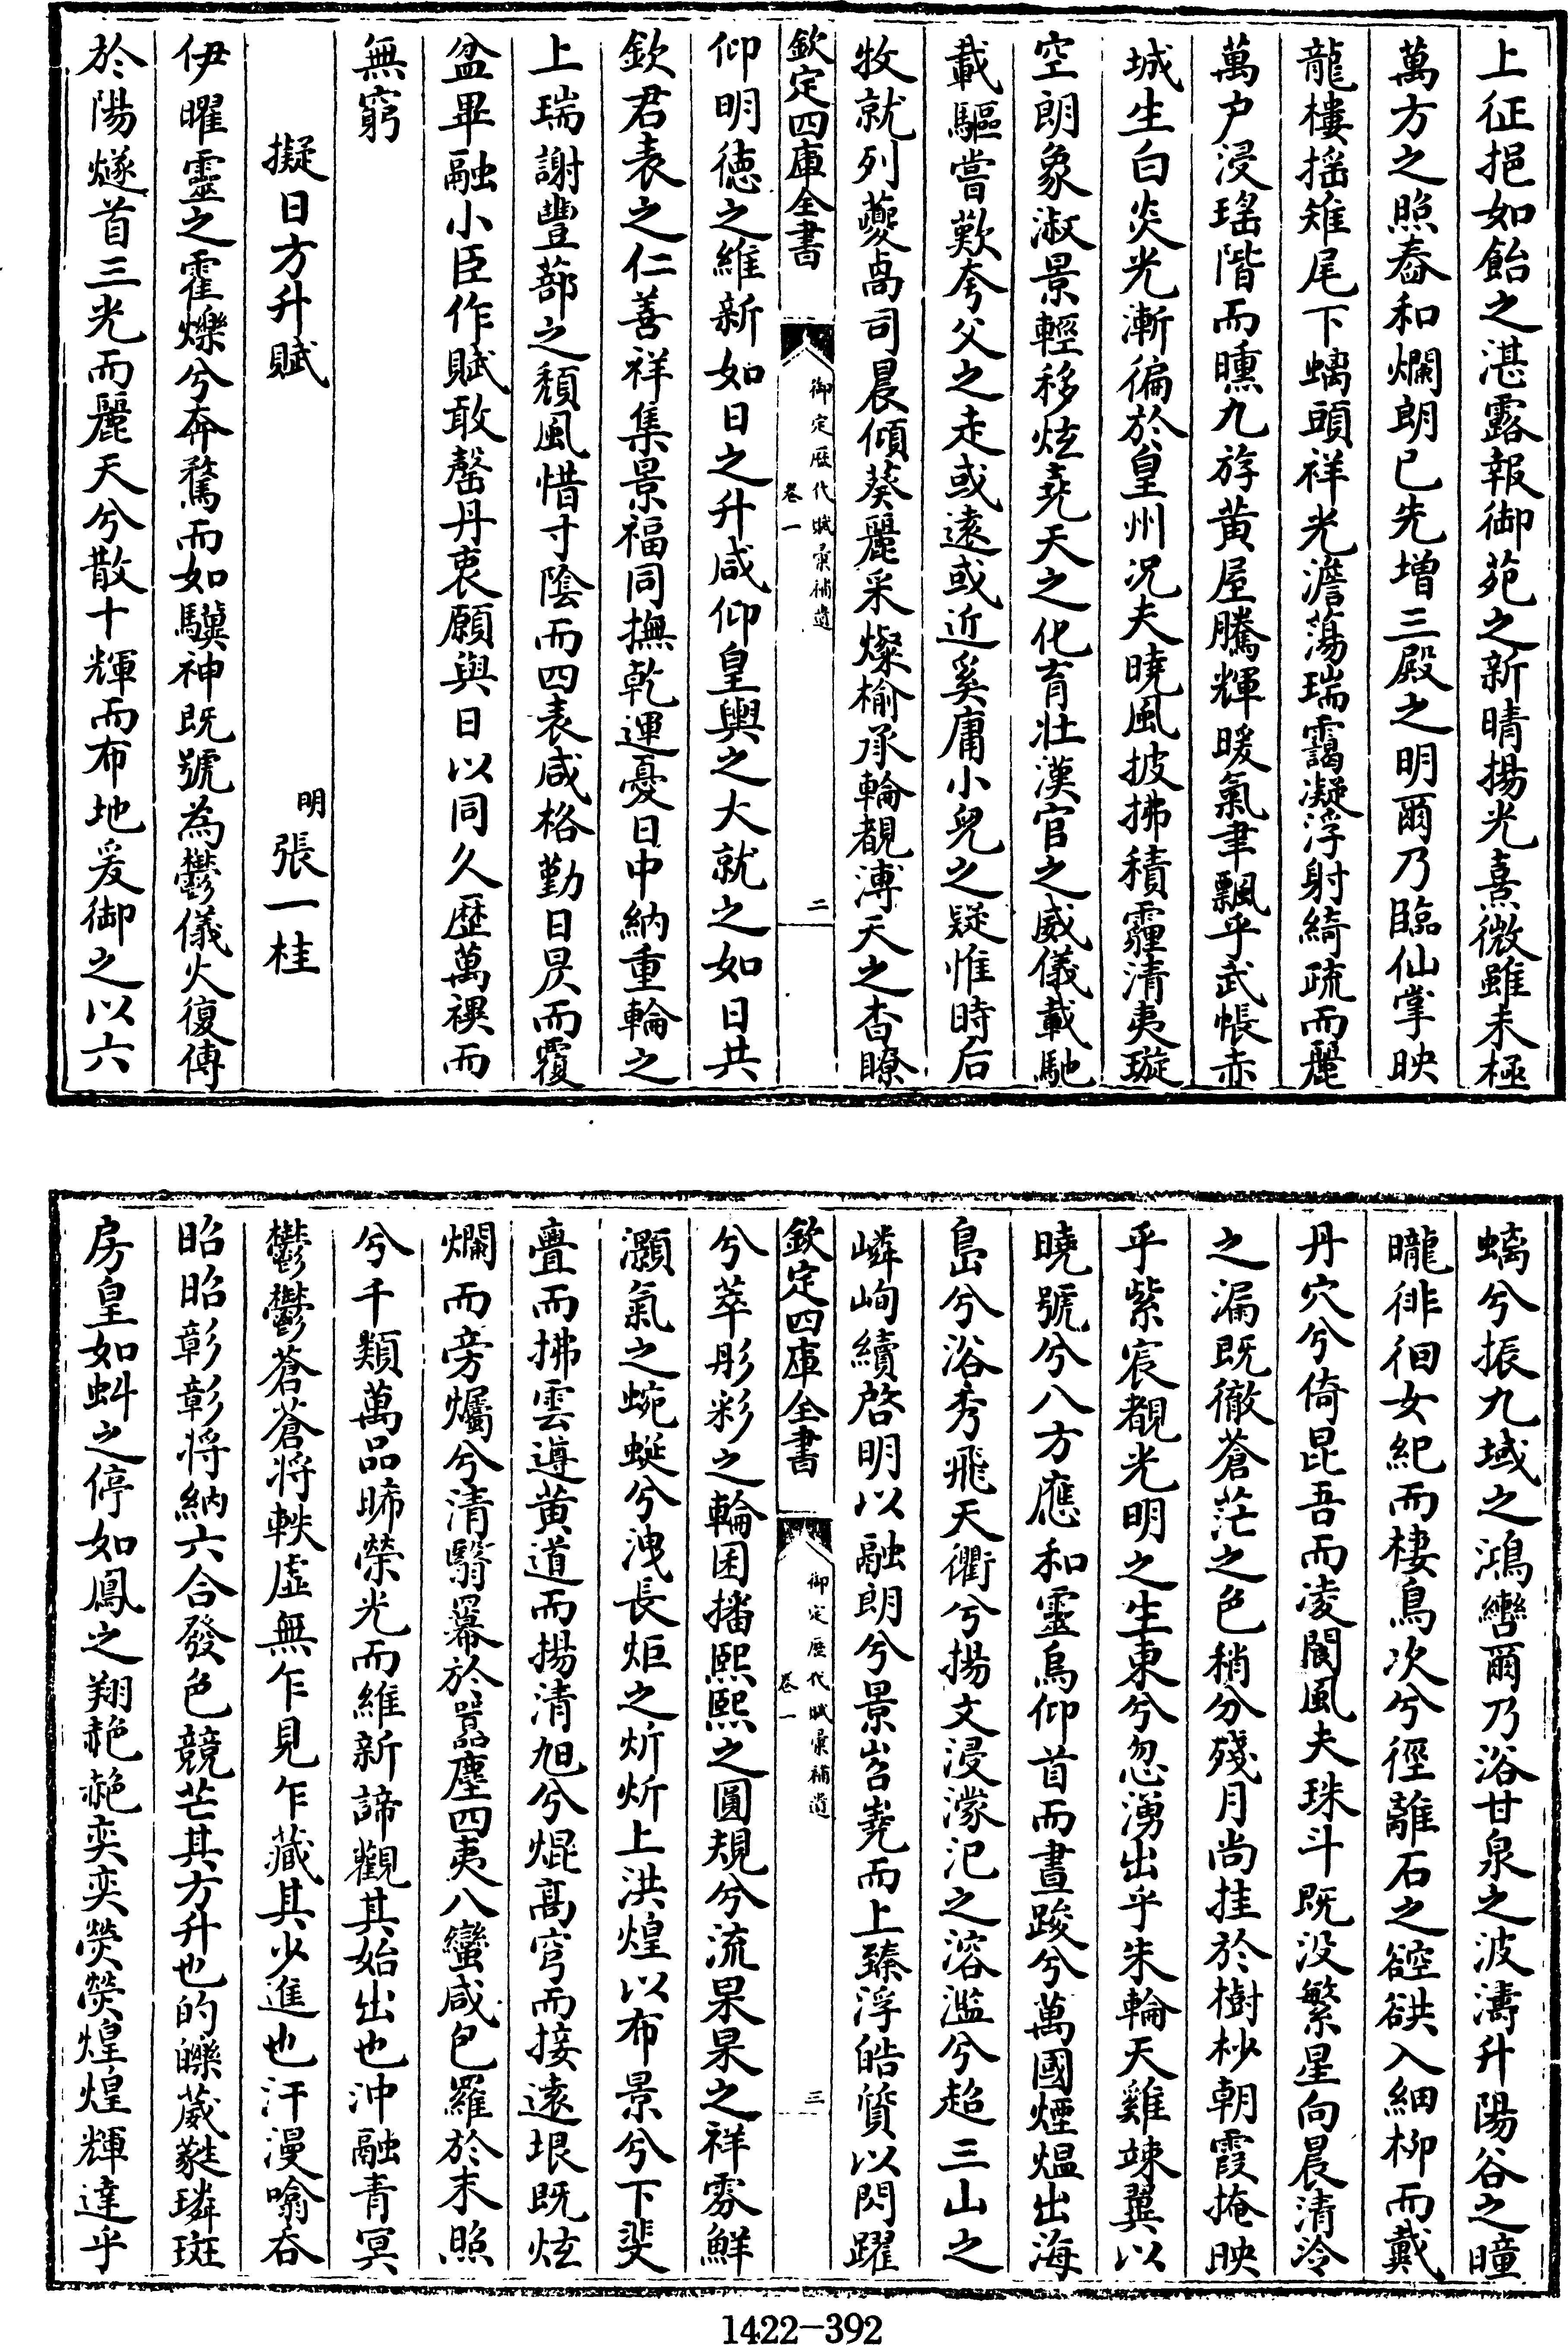 上征挹如飴之湛露報御苑之新晴揚光熹微雖未極
萬方之照舂和爛朗已先增三殿之明爾乃臨仙掌映
龍樓揺雉尾下螭頭祥光澹蕩瑞靄凝浮射綺疏而麗
萬户浸瑤階而曛九斿黄屋騰輝暖氣聿飄乎武帳赤
城生白炎光漸徧於皇州況夫曉風披拂積霾清夷璇
空朗象淑景輕移炫堯天之化育壯漢官之威儀載馳
載驅嘗歎夸父之走或遠或近奚庸小兒之疑惟時后
牧就列夔卨司晨傾葵麗采燦榆承輪覩溥天之杳瞭
欽定四庫全書
御定歴代賦彙補遺
卷一
二
仰明德之維新如日之升咸仰皇輿之大就之如日共
欽君表之仁善祥集景福同撫乾運憂日中納重輪之
上瑞謝豐蔀之頹風惜寸陰而四表咸格勤日昃而覆
盆畢融小臣作賦敢罄丹衷願與日以同久歴萬禩而
無窮
擬日方升賦
明
張一桂
伊曜靈之霍爍兮奔騖而如驥神既號為鬱儀火復傳
於陽燧首三光而麗天兮散十輝而布地爰御之以六
螭兮振九域之鴻轡爾乃浴甘泉之波濤升陽谷之曈
曨徘徊女紀而棲鳥次兮徑離石之硿谼入細柳而戴
丹穴兮倚昆吾而凌閬風夫珠斗既没繁星向晨清泠
之漏既徹蒼茫之色稍分殘月尚挂於樹杪朝霞掩映
乎紫宸覩光明之生東兮忽湧出乎朱輪天雞竦翼以
曉號兮八方應和靈烏仰首而晝踆兮萬國煙熅出海
島兮浴秀飛天衢兮揚文浸濛汜之溶濫兮超三山之
嶙峋續啓明以融朗兮景岧嶤而上臻浮皓質以閃躍
欽定四庫全書
御定歴代賦彙補遺
卷一
三
兮萃彤彩之輪囷播熙熙之圓規兮流杲杲之祥雰鮮
灝氣之蜿蜒兮洩長炬之炘炘上洪煌以布景兮下斐
亹而拂雲遵黄道而揚清旭兮焜髙穹而接遠垠既炫
爛而旁爥兮清翳羃於嚣塵四夷八蠻咸包羅於末照
兮千類萬品晞榮光而維新諦觀其始出也沖融青冥
鬱鬱蒼蒼将軼虛無乍見乍藏其少進也汗漫噏吞
昭昭彰彰将納六合發色競芒其方升也的皪葳蕤璘斑
房皇如虯之停如鳳之翔赩赩奕奕熒熒煌煌輝達乎
1422-392